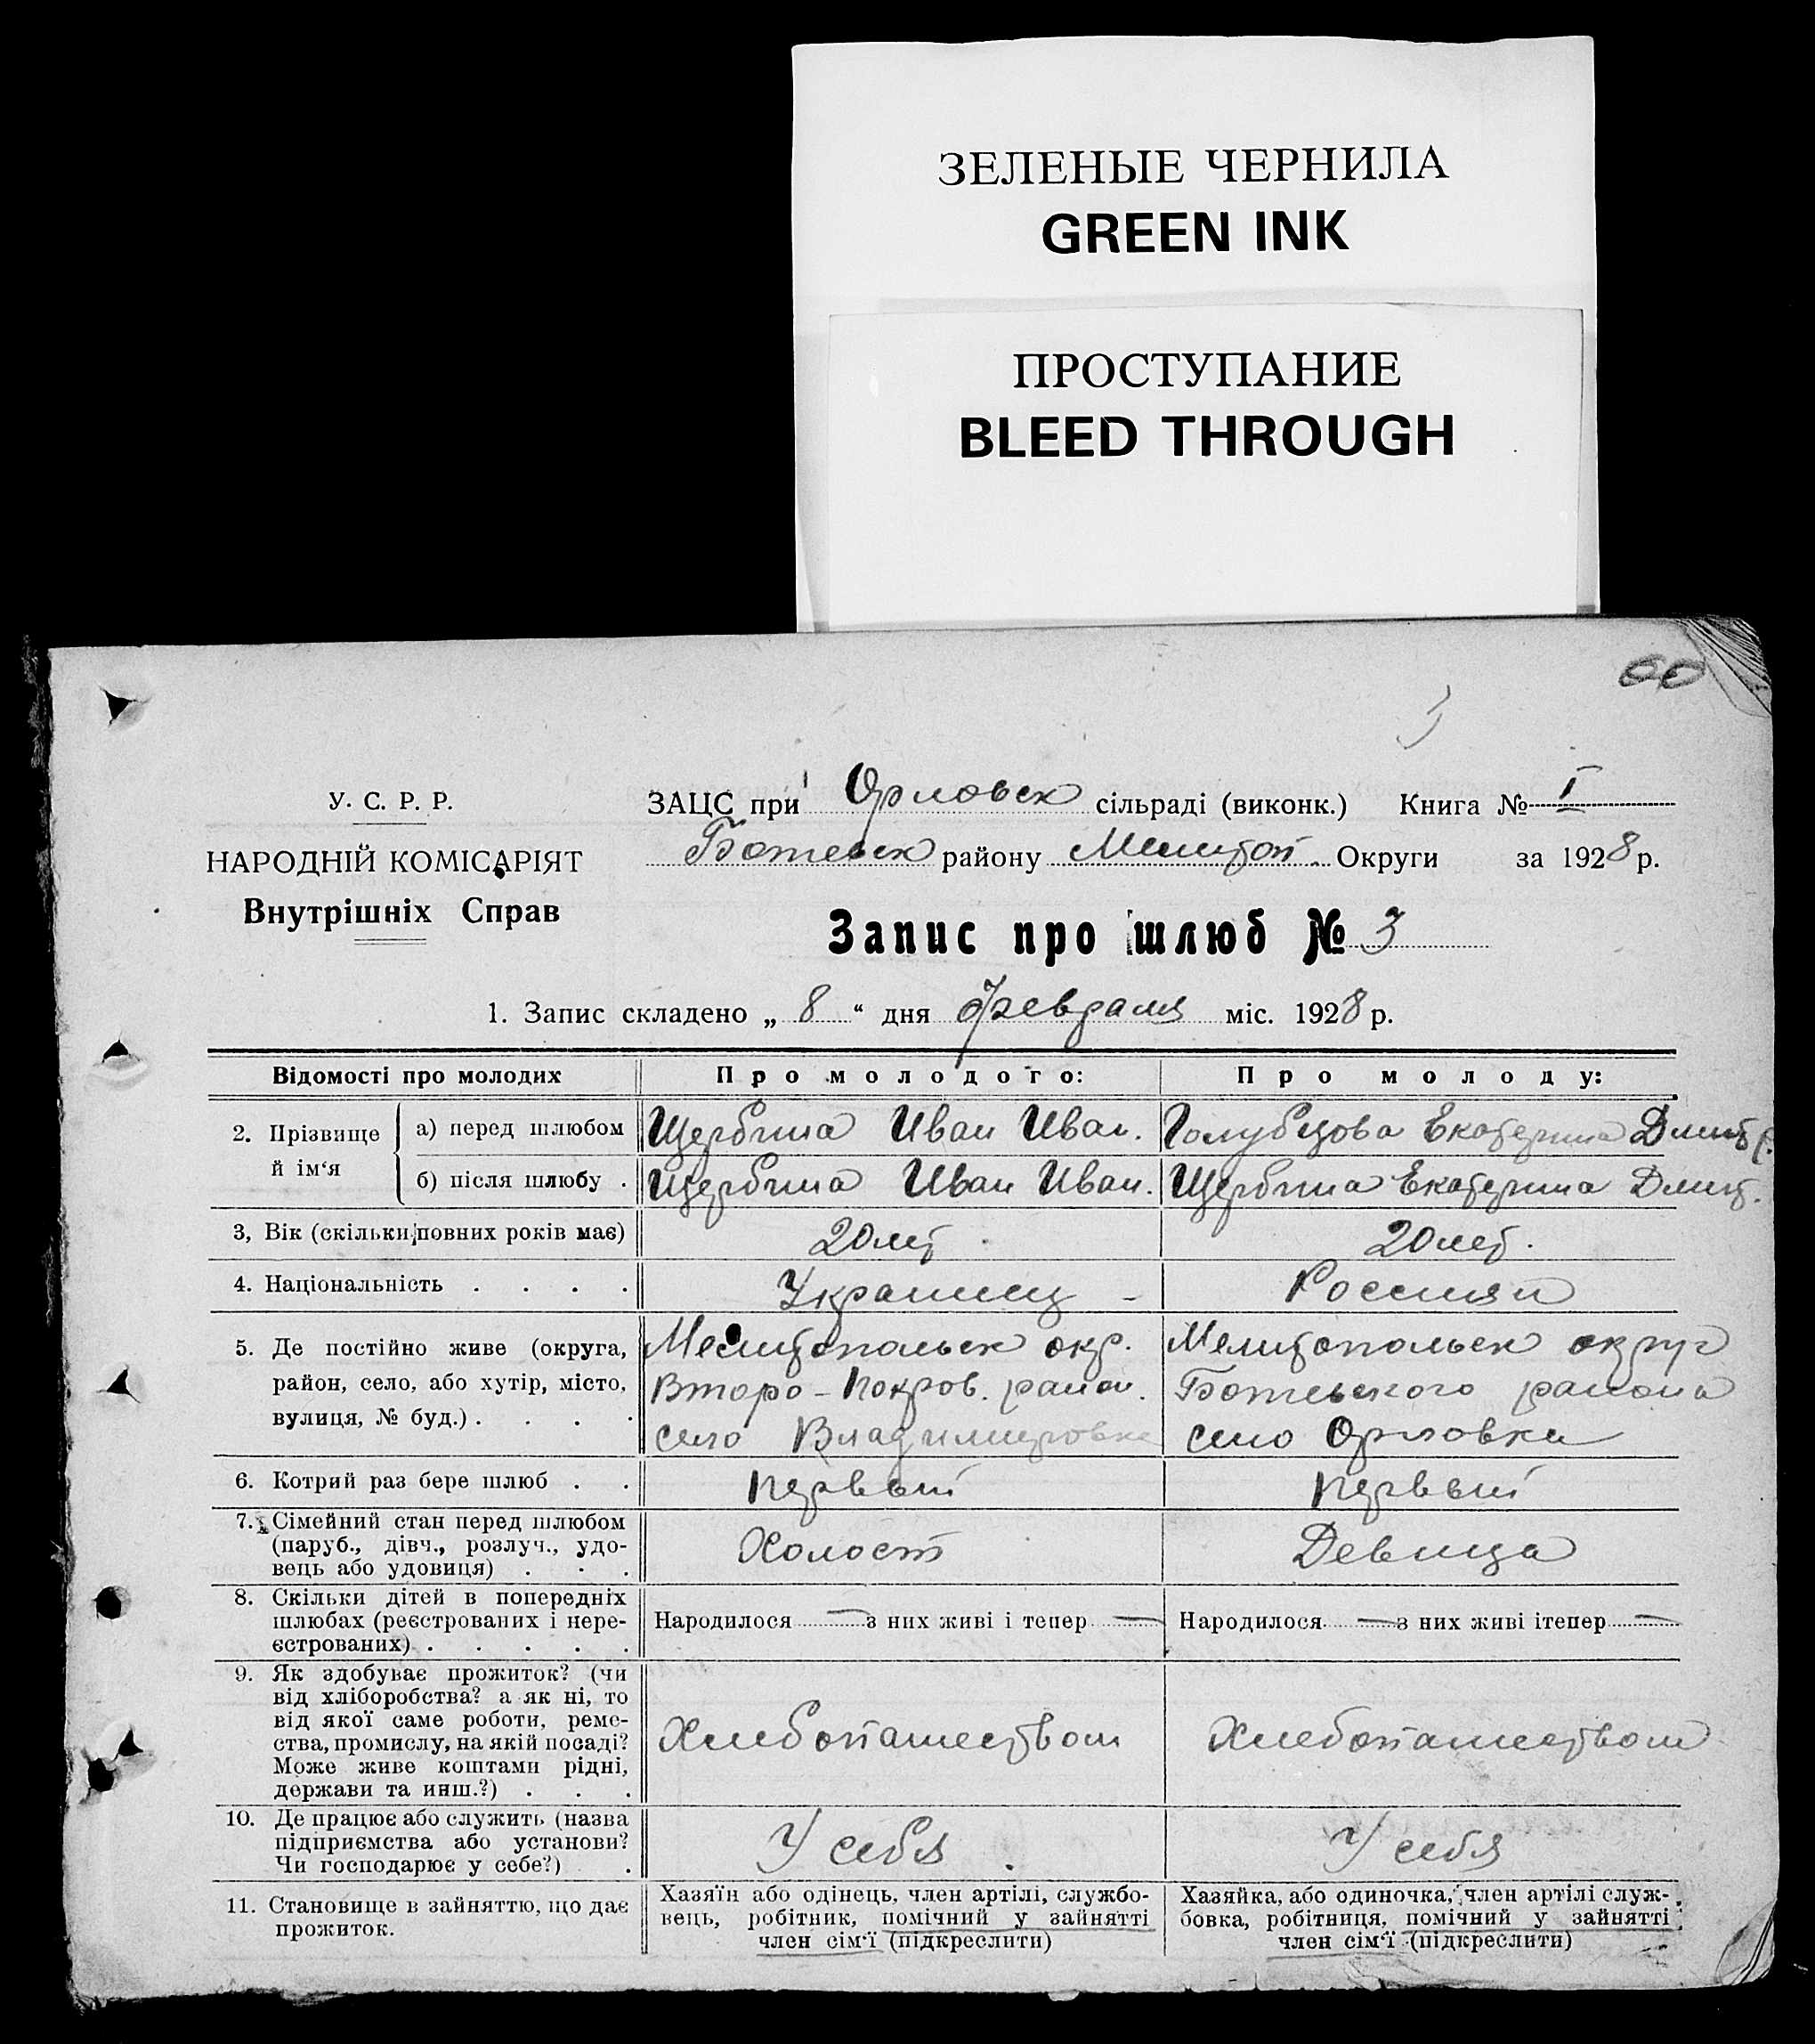 ЗЕЛЕНЫЕ ЧЕРНИЛА
GREEN INK
ПРОСТУПАНИЕ
BLEED THROUGH
3
У. С. Р. Р.
НАРОДНІЙ КОМІСАРІЯТ
Внутрішніх Справ
ЗАЦС при Орловск сільраді (виконк.) Книга № I
Ботевск району Мелитоп. Округи за 1928 р.
Запис про шлюб № 3
1. Запис складено „ 8 “ дня февраля міс. 1928 р.
Відомості про молодих
Про молодого:
Про молоду:
2. Прізвище й ім‘я
а) перед шлюбом
Щербина Иван Иван.
Голубцова Екатерина Дмитр.
б) після шлюбу .
Щербина Иван Иван.
Щербина Екатерина Дмит.
3, Вік (скільки повних років має)
20 лет.
20 лет.
4. Національність . . . .
Украинец
Россиян
5. Де постійно живе (округа,
район, село, або хутір, місто,
вулиця, № буд.) . . . .
Мелитопольск окр.
Второ-Покров. район.
село Владимировка
Мелитопольск округ
Ботевского района
село Орловка
6. Котрий раз бере шлюб . .
первый
первый
7. Сімейний стан перед шлюбом
(паруб., дівч., розлуч., удо-
вець або удовиця) . . .
Холост
Девица
8. Скільки дітей в попередніх
шлюбах (реєстрованих і нере-
єстрованих) . . . . .
Народилося — з них живі і тепер —
Народилося — з них живі ітепер —
9. Як здобуває прожиток? (чи
від хліборобства? а як ні, то
від якої саме роботи, реме-
ства, промислу, на якій посаді?
Може живе коштами рідні,
держави та инш.?) . . .
Хлебопашеством
Хлебопашеством
10. Де працює або служить (назва
підприємства або установи?
Чи господарює у себе?) .
У себя
У себя
11. Становище в зайняттю, що дає
прожиток.
Хазяїн або одінець, член артілі, службо-
вець, робітник, помічний у зайнятті
член сім‘ї (підкреслити)
Хазяйка, або одиночка, член артілі служ-
бовка, робітниця, помічний у зайнятті
член сім‘ї (підкреслити)